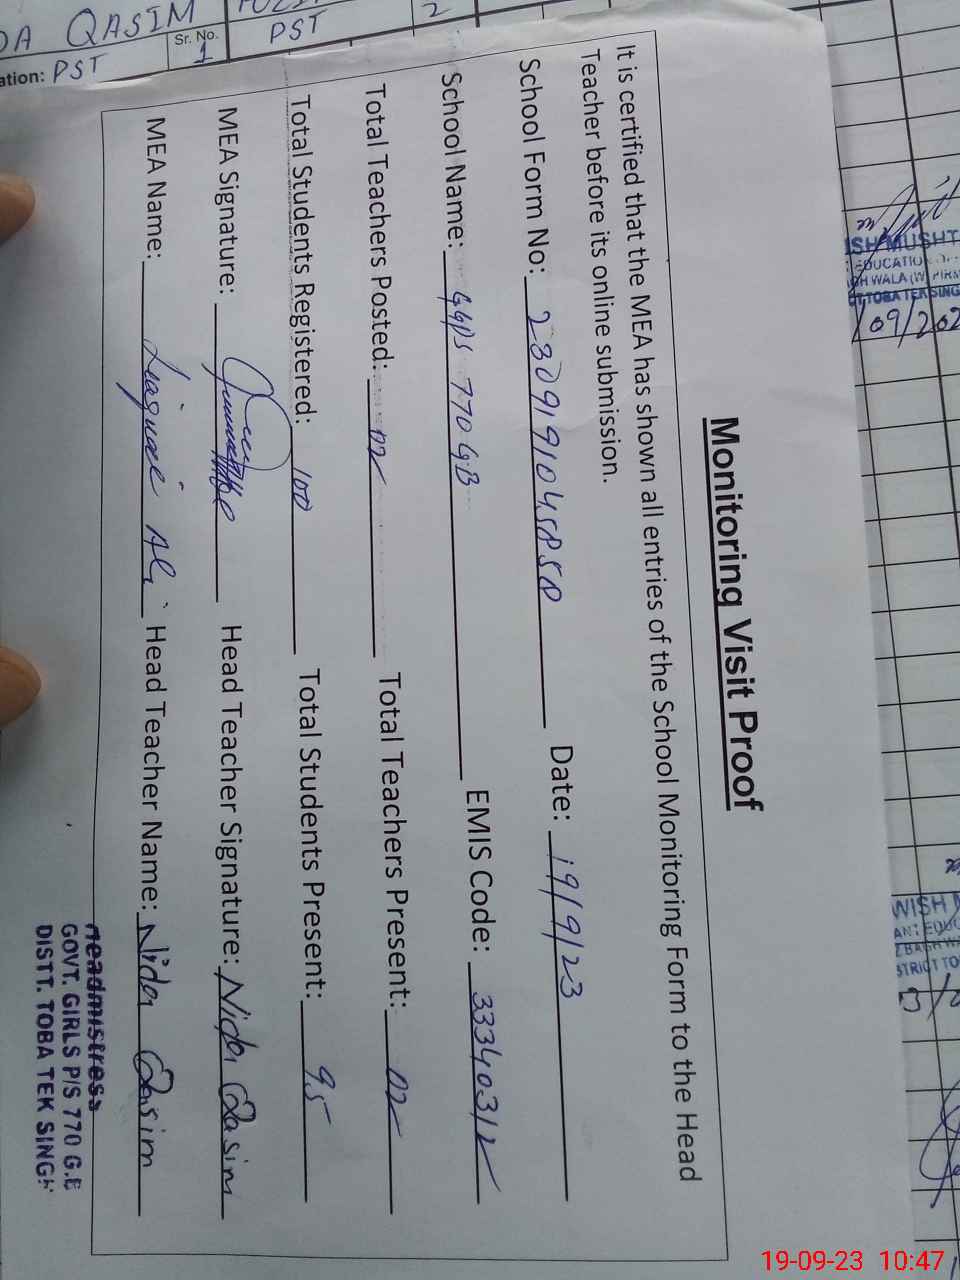 Monitoring Visit Proof
It is certified that the MEA has shown all entries of the School Monitoring Form to the Head
Teacher before its online submission.
School Form No: Date: 19/9/23
School Name: GGPS 770 GB EMIS Code: 33340312
Total Teachers Posted: 02 Total Teachers Present: 02
Total Students Registered: 100 Total Students Present: 95
MEA Signature: Head Teacher Signature: Nida Qasim
MEA Name: Liaquat Ali Head Teacher Name: Nida Qasim
Headmistress
GOVT. GIRLS P/S 770 G.B
DISTT. TOBA TEK SINGH
DA QASIM
Sr. No.
1
PST
2
ation: PST
ISH MUSHT
EDUCATIO
TOBA TEK SING
/09/202
WISH M
STRICT TO
19-09-23 10:47